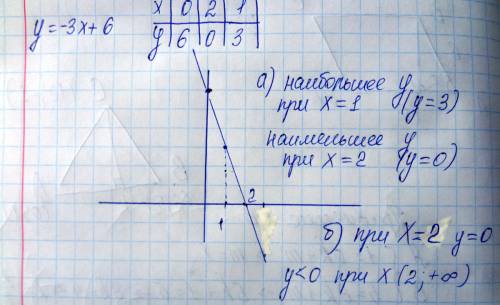 y=-3x+6
x | 0 | 2 | 1 |
y | 6 | 0 | 3 |
а) наибольшее y
при x=1 (y=3)
наименьшее y
при x=2 (y=0)
2
1
б) при x=2 y=0
y<0 при x (2; +∞)